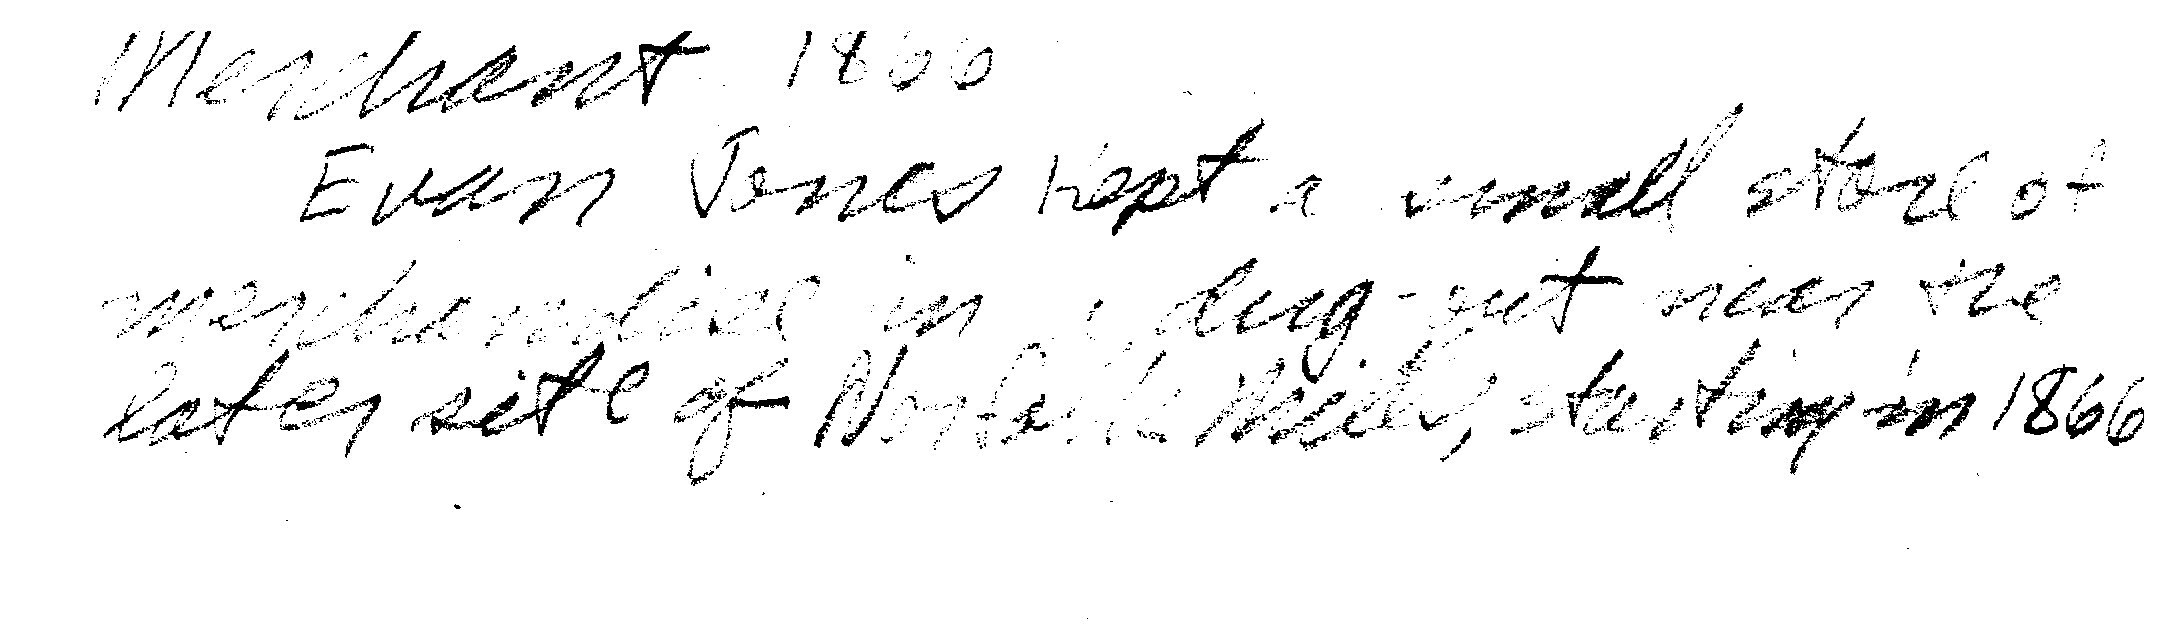 Merchant 1866
Evan Jones kept a small store of
merchandise in a dug-out near the
later site of Norfolk Mills, starting in 1866